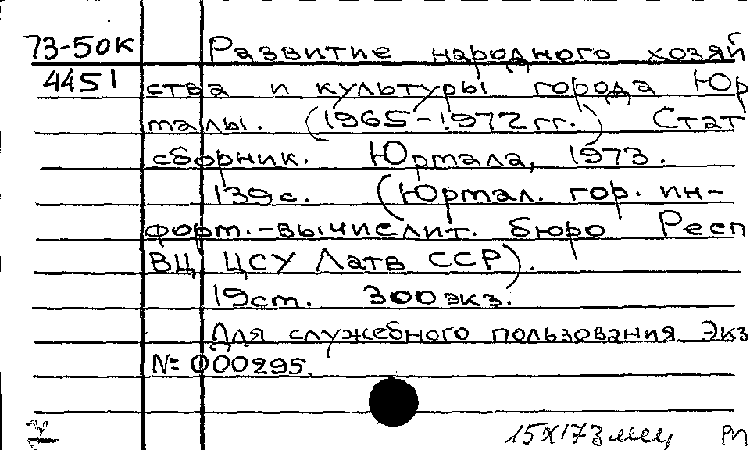 73-50к Развитие народного хозяй
4451 ства и культуры города Юр
малы. (1965-1972 гг.) Стат
сборник. Юрмала, 1973.
139 с. (Юрмал. гор. ин-
форм.-вычислит. бюро Респ
ВЦ ЦСУ Латв ССР).
19 ст. 300 экз.
Для служебного пользования Экз
№ 000295.